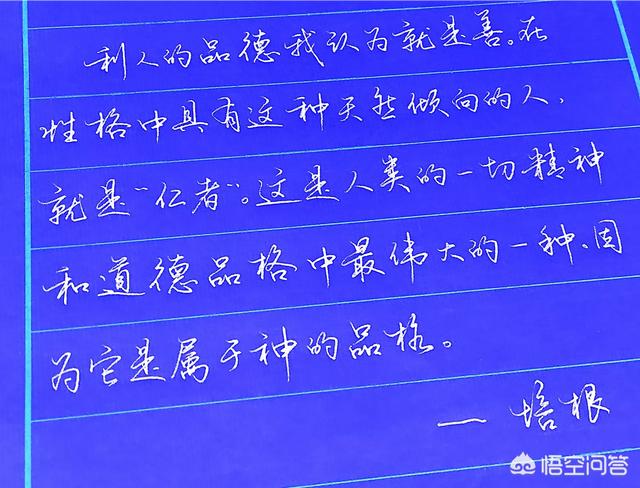 利人的品德我认为就是善。在
性格中具有这种天然倾向的人、
就是“仁者”。这是人类的一切精神
和道德品格中最伟大的一种、因
为它是属于神的品格。
— 培根
悟空问答